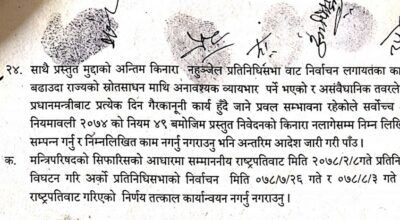 २४. साथै प्रस्तुत मुद्दाको अन्तिम किनारा नहुञ्जेल प्रतिनिधिसभा वाट निर्वाचन लगायतका का
बढाउदा राज्यको स्रोतसाधन माथि अनावश्यक व्यायभार पर्ने भएको र असंवैधानिक तवरले
प्रधानमन्त्रीबाट प्रत्येक दिन गैरकानूनी कार्य हुँदै जाने प्रवल सम्भावना रहेकोले सर्वोच्च
नियमावली २०७४ को नियम ४९ बमोजिम प्रस्तुत निवेदनको किनारा नलागेसम्म निम्न लिखि
सम्पन्न गर्नु र निम्नलिखित काम नगर्नु नगराउनु भनि अन्तरिम आदेश जारी गरी पाउँ।
क. मन्त्रिपरिषदको सिफारिसको आधारमा सम्माननीय राष्ट्रपतिवाट मिति २०७८/२/८गते प्रतिनि
विघटन गरि अर्को प्रतिनिधिसभाको निर्वाचन मिति ०७८/७/२६ गते र ०७८/८/३ गते
राष्ट्रपतिवाट गरिएको निर्णय तत्काल कार्यान्वयन नगर्नु नगराउनु।